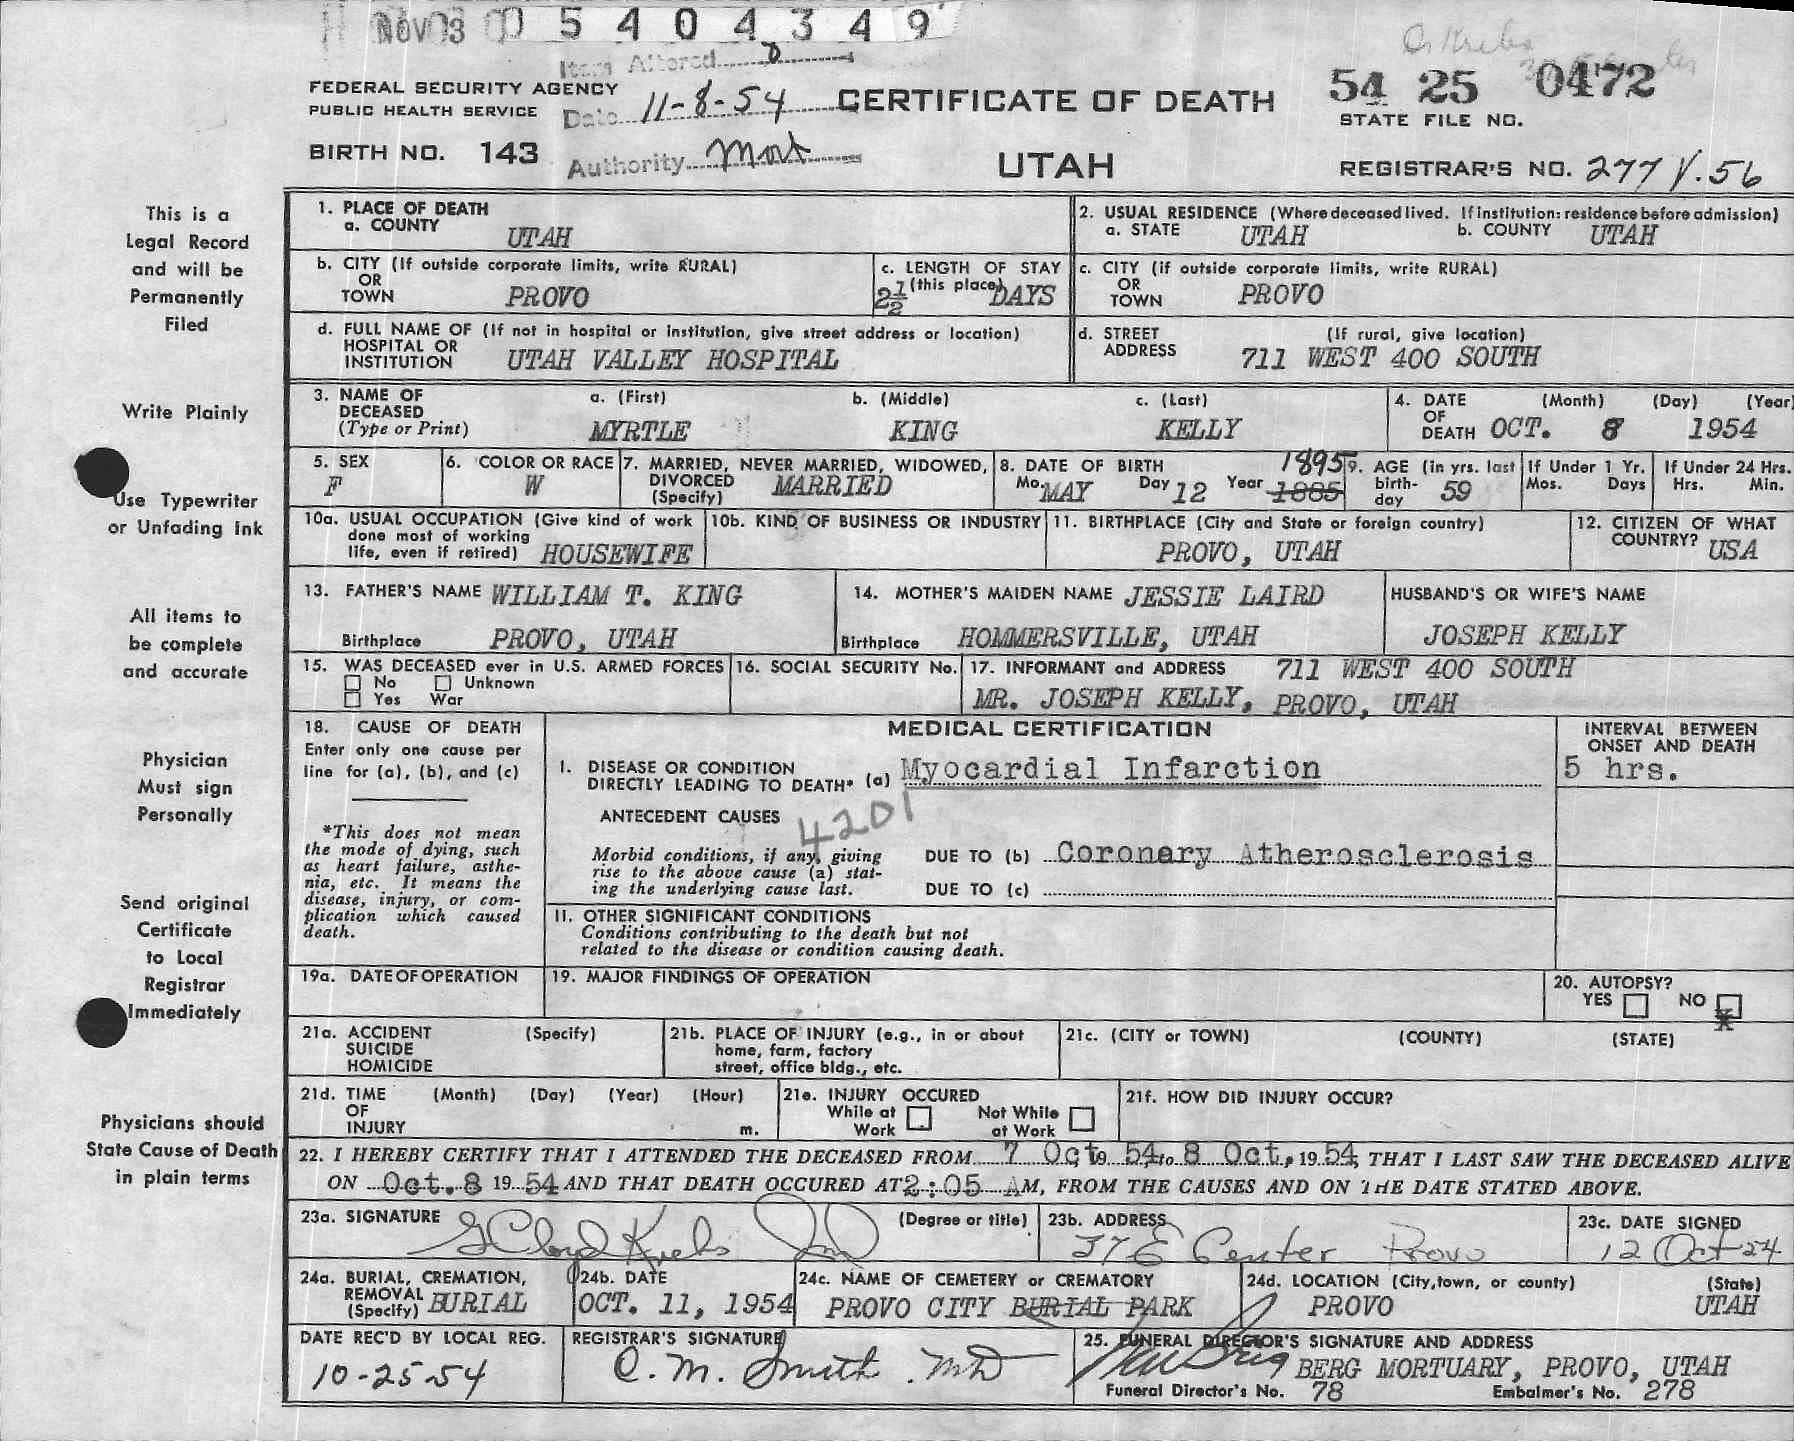 NOV 3 0 5 4 0 4 3 4 9
Item Altered D
FEDERAL SECURITY AGENCY
PUBLIC HEALTH SERVICE
Date 11-8-54
CERTIFICATE OF DEATH
54 25 0472
STATE FILE NO.
BIRTH NO. 143
Authority Mort
UTAH
REGISTRAR'S NO. 277 V. 56
This is a
Legal Record
and will be
Permanently
Filed
1. PLACE OF DEATH
a. COUNTY
UTAH
2. USUAL RESIDENCE (Where deceased lived. If institution: residence before admission)
a. STATE UTAH b. COUNTY UTAH
b. CITY (If outside corporate limits, write RURAL)
OR
TOWN PROVO
c. LENGTH OF STAY
(this place)
2½ DAYS
c. CITY (if outside corporate limits, write RURAL)
OR
TOWN PROVO
d. FULL NAME OF (If not in hospital or institution, give street address or location)
HOSPITAL OR
INSTITUTION UTAH VALLEY HOSPITAL
d. STREET (If rural, give location)
ADDRESS 711 WEST 400 SOUTH
Write Plainly
3. NAME OF a. (First) b. (Middle) c. (Last)
DECEASED
(Type or Print) MYRTLE KING KELLY
4. DATE (Month) (Day) (Year)
OF
DEATH OCT. 8 1954
Use Typewriter
or Unfading Ink
5. SEX
F
6. COLOR OR RACE
W
7. MARRIED, NEVER MARRIED, WIDOWED,
DIVORCED MARRIED
(Specify)
8. DATE OF BIRTH 1895
Mo. MAY Day 12 Year 1885
9. AGE (in yrs. last
birth-
day 59
If Under 1 Yr.
Mos. Days
If Under 24 Hrs.
Hrs. Min.
10a. USUAL OCCUPATION (Give kind of work
done most of working
life, even if retired) HOUSEWIFE
10b. KIND OF BUSINESS OR INDUSTRY
11. BIRTHPLACE (City and State or foreign country)
PROVO, UTAH
12. CITIZEN OF WHAT
COUNTRY? USA
All items to
be complete
and accurate
13. FATHER'S NAME WILLIAM T. KING
Birthplace PROVO, UTAH
14. MOTHER'S MAIDEN NAME JESSIE LAIRD
Birthplace HOMMERSVILLE, UTAH
HUSBAND'S OR WIFE'S NAME
JOSEPH KELLY
15. WAS DECEASED ever in U.S. ARMED FORCES
No Unknown
Yes War
16. SOCIAL SECURITY No.
17. INFORMANT and ADDRESS 711 WEST 400 SOUTH
MR. JOSEPH KELLY, PROVO, UTAH
Physician
Must sign
Personally
18. CAUSE OF DEATH
Enter only one cause per
line for (a), (b), and (c)
*This does not mean
the mode of dying, such
as heart failure, asthe-
nia, etc. It means the
disease, injury, or com-
plication which caused
death.
MEDICAL CERTIFICATION
I. DISEASE OR CONDITION
DIRECTLY LEADING TO DEATH* (a) Myocardial Infarction
ANTECEDENT CAUSES
4201
Morbid conditions, if any, giving
rise to the above cause (a) stat-
ing the underlying cause last.
DUE TO (b) Coronary Atherosclerosis
DUE TO (c)
INTERVAL BETWEEN
ONSET AND DEATH
5 hrs.
II. OTHER SIGNIFICANT CONDITIONS
Conditions contributing to the death but not
related to the disease or condition causing death.
Send original
Certificate
to Local
Registrar
Immediately
19a. DATE OF OPERATION
19. MAJOR FINDINGS OF OPERATION
20. AUTOPSY?
YES NO X
21a. ACCIDENT (Specify)
SUICIDE
HOMICIDE
21b. PLACE OF INJURY (e.g., in or about
home, farm, factory
street, office bldg., etc.
21c. (CITY or TOWN) (COUNTY) (STATE)
21d. TIME (Month) (Day) (Year) (Hour)
OF
INJURY m.
21e. INJURY OCCURED
While at Work
Not While at Work
21f. HOW DID INJURY OCCUR?
Physicians should
State Cause of Death
in plain terms
22. I HEREBY CERTIFY THAT I ATTENDED THE DECEASED FROM 7 Oct 19 54, to 8 Oct, 19 54, THAT I LAST SAW THE DECEASED ALIVE
ON Oct. 8 19 54 AND THAT DEATH OCCURED AT 2:05 AM, FROM THE CAUSES AND ON THE DATE STATED ABOVE.
23a. SIGNATURE (Degree or title)
G Cloyd Krebs MD
23b. ADDRESS
37 E Center Provo
23c. DATE SIGNED
12 Oct 54
24a. BURIAL, CREMATION,
REMOVAL
(Specify) BURIAL
24b. DATE
OCT. 11, 1954
24c. NAME OF CEMETERY or CREMATORY
PROVO CITY BURIAL PARK
24d. LOCATION (City, town, or county) (State)
PROVO UTAH
DATE REC'D BY LOCAL REG.
10-25-54
REGISTRAR'S SIGNATURE
C. M. Smith. MD
25. FUNERAL DIRECTOR'S SIGNATURE AND ADDRESS
BERG MORTUARY, PROVO, UTAH
Funeral Director's No. 78 Embalmer's No. 278